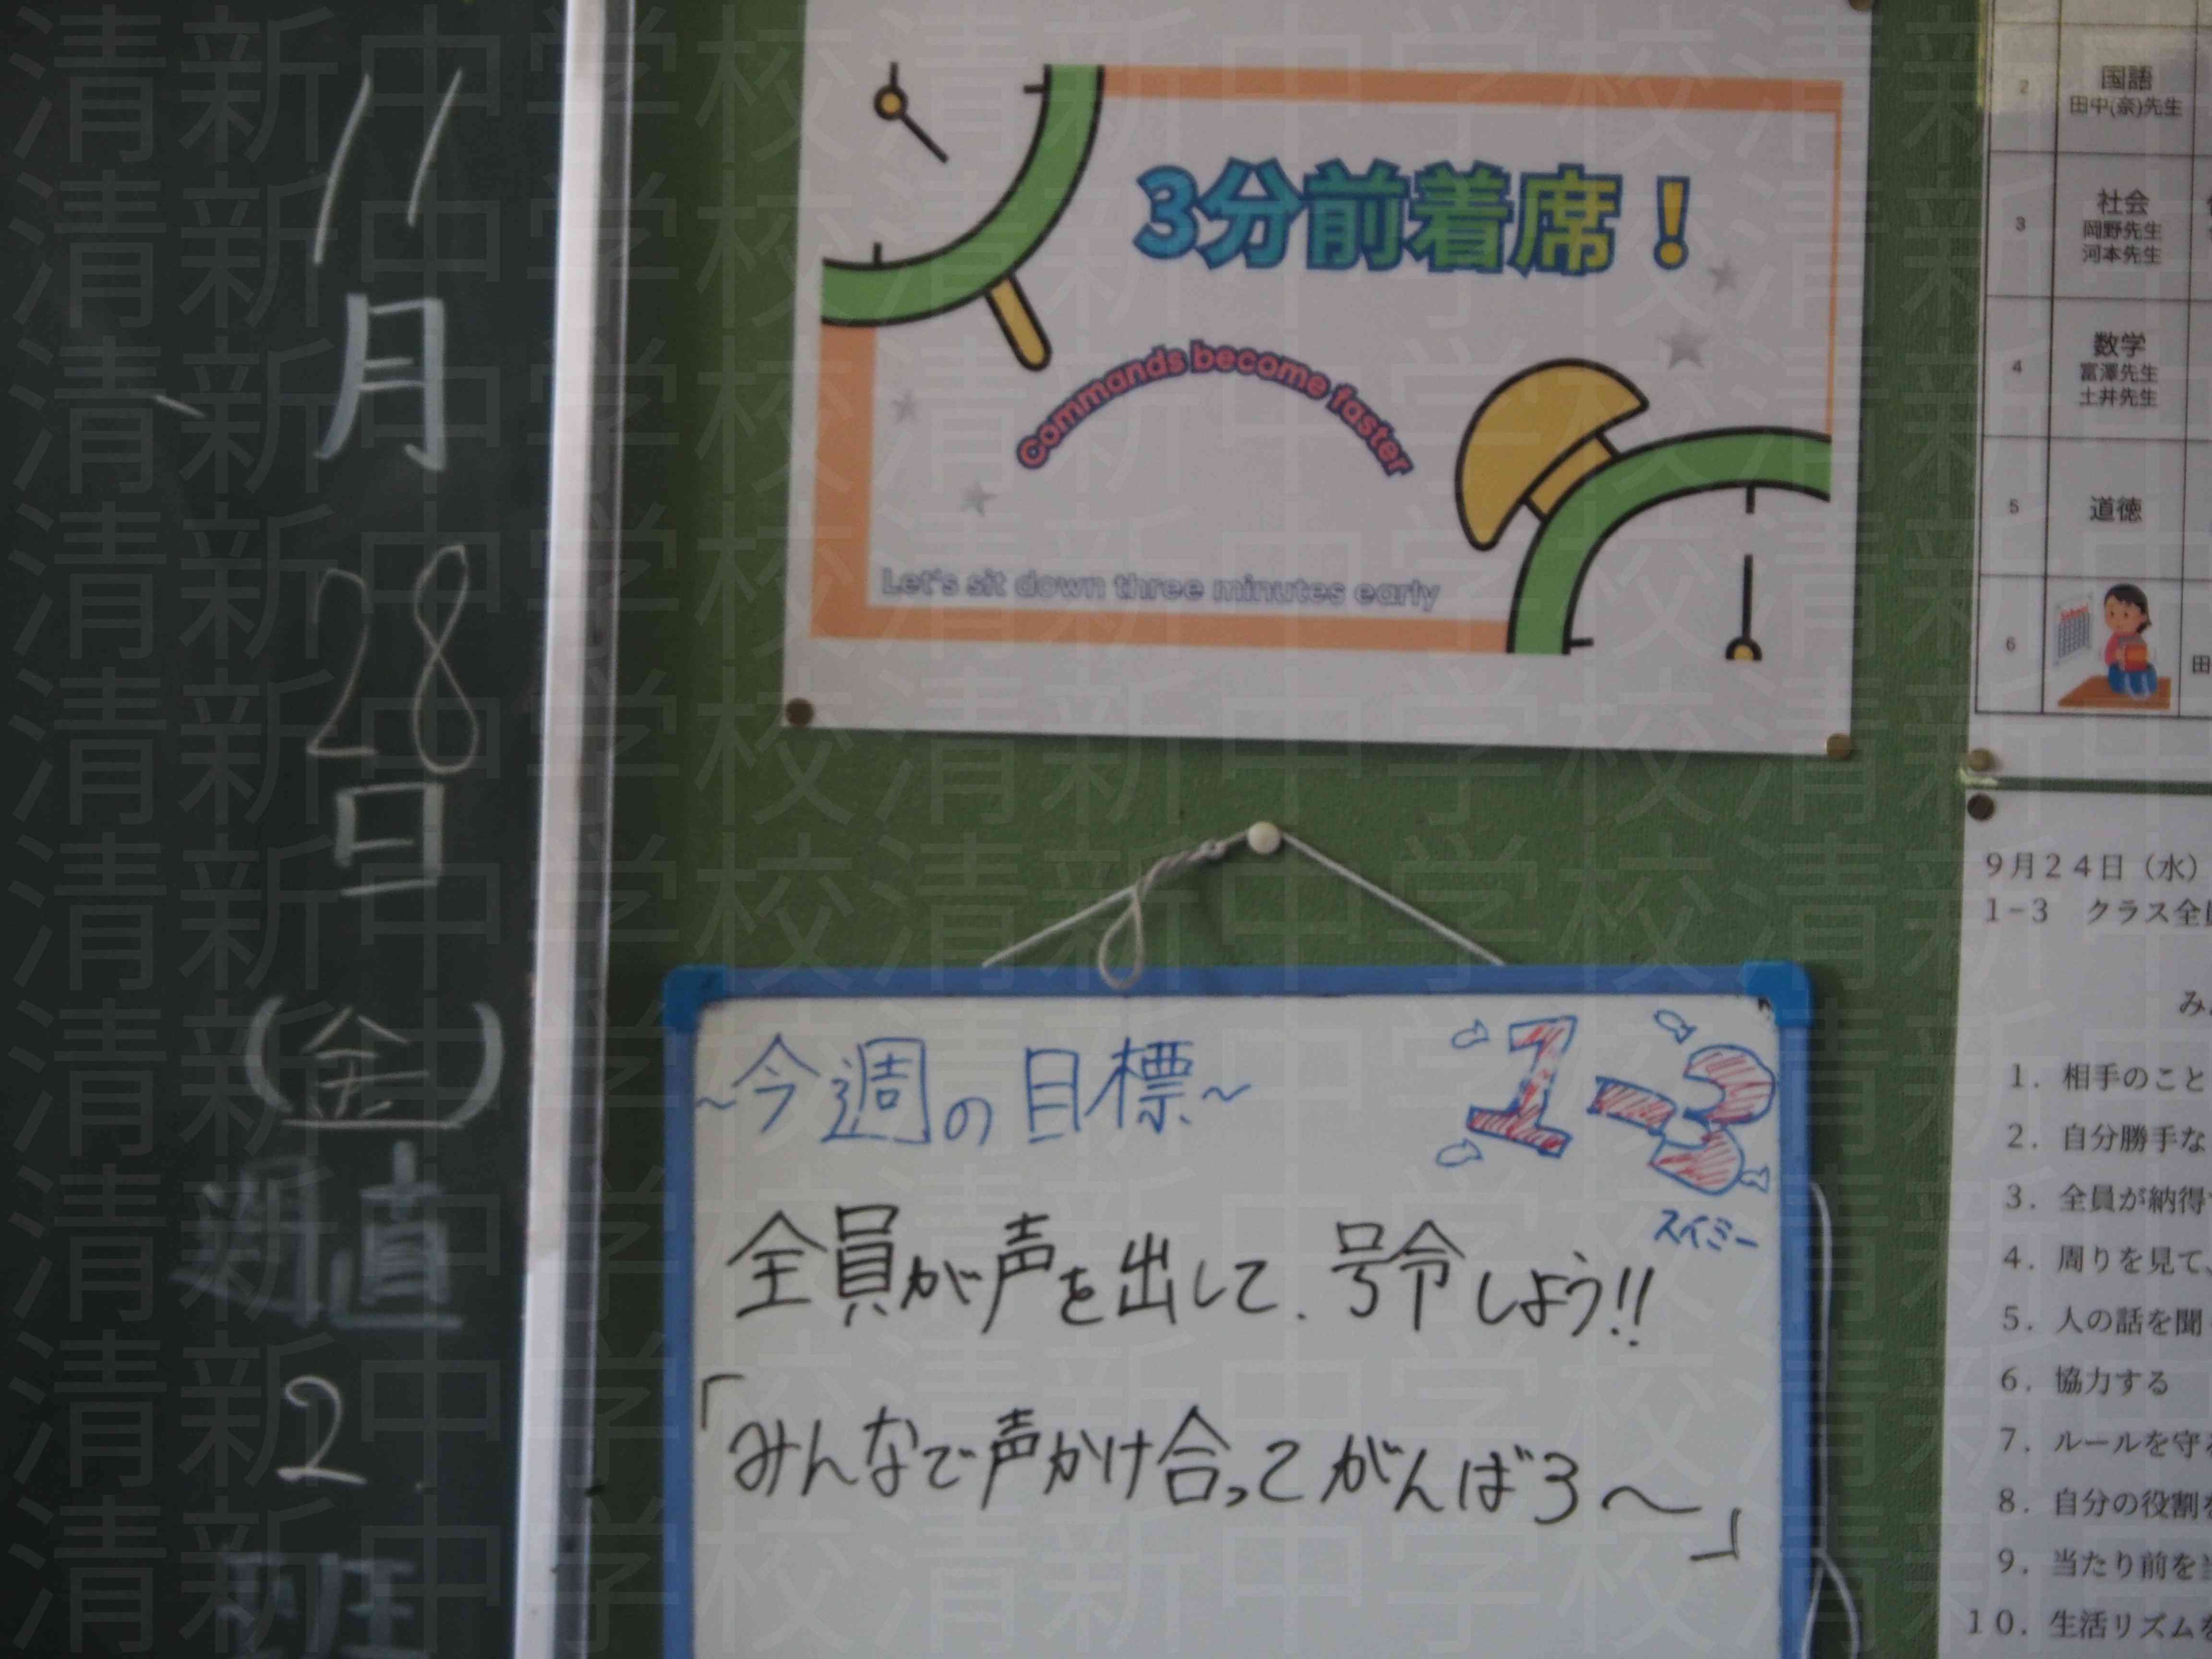 11月28日(金)週直2班
3分前着席！
Commands become faster
Let's sit down three minutes early
~今週の目標~
1-3
スイミー
全員が声を出して、号令しよう!!
「みんなで声かけ合ってがんばろ～」
2 国語
田中(奈)先生
3 社会
岡野先生
河本先生
4 数学
富澤先生
土井先生
5 道徳
6
田
9月24日（水）
1-3 クラス全
み
1．相手のこと
2．自分勝手な
3．全員が納得
4．周りを見て、
5．人の話を聞
6．協力する
7．ルールを守
8．自分の役割
9．当たり前を
10．生活リズム
清新中学校